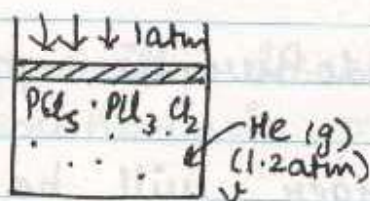 1 atm
PCl5 · PCl3 Cl2
He (g)
(1.2 atm)